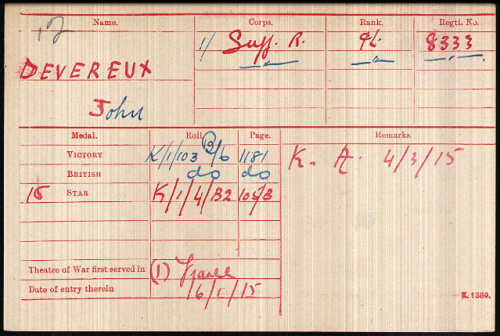 Name. Corps. Rank. Regtl. No.
DEVEREUX 1/ Suff. R. Pte. 8333
John
Medal. Roll. Page. Remarks
VICTORY K/1/103 B6 1181 K. A. 4/3/15
BRITISH do do
15 STAR K/1/4/B2 105/B
Theatre of War first served in (1) France
Date of entry therein 16/1/15
K 1380.